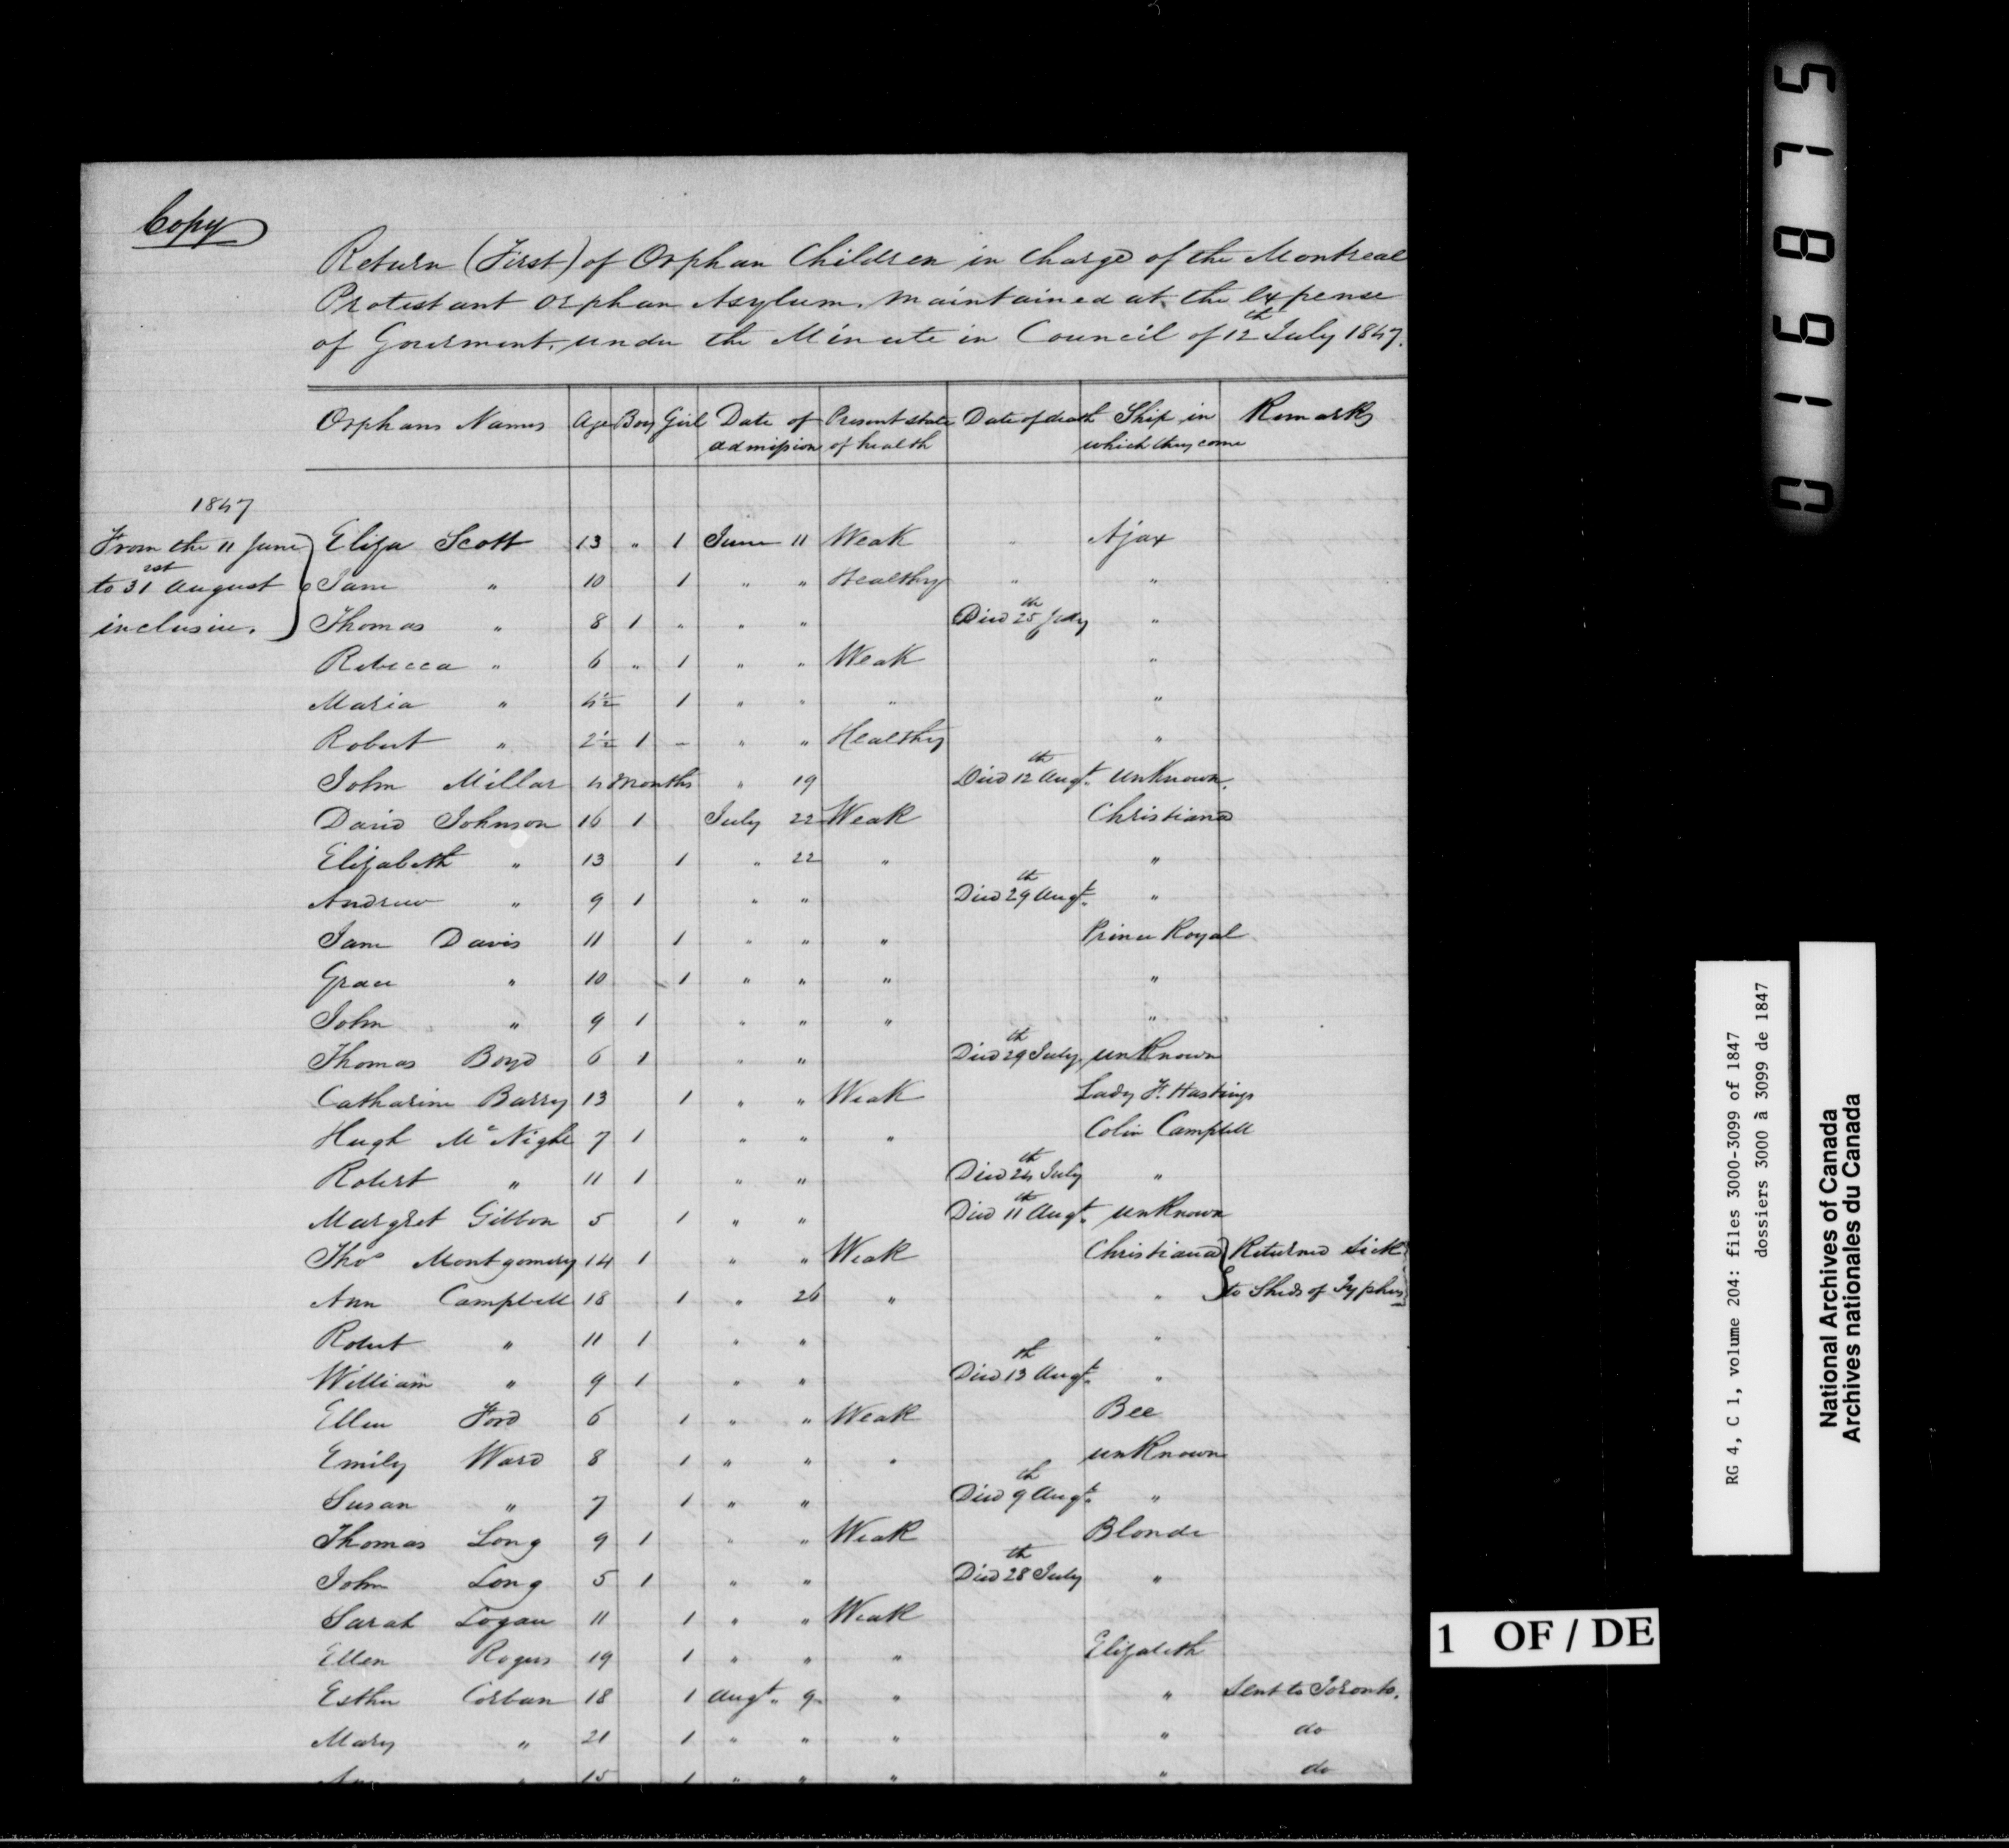 Copy
Return (First) of Orphan Children in Charge of the Montreal
Protestant Orphan Asylum, maintained at the expense
of Goverment, under the Minute in Council of 12th July 1847.
Orphans Names Age Boy Girl Date of admission Present state of health Date of death Ship in which they come Remarks
1847
From the 11 June
to 31st August
inclusive.
Eliza Scott 13 " 1 June 11 Weak " Ajax
Jane " 10 1 " " Healthy " "
Thomas " 8 1 " " " Died 25th July "
Rebecca " 6 " 1 " " Weak "
Maria " 4½ 1 " " " "
Robert " 2½ 1 - " " Healthy "
John Millar 4 months " 19 Died 12th Augt. unknown.
David Johnson 16 1 July 22 Weak Christiana
Elizabeth " 13 1 " 22 " "
Andrew " 9 1 " " Died 29th Augt. "
Jane Davis 11 1 " " " Prince Royal
Grace " 10 1 " " " "
John " 9 1 " " " "
Thomas Boyd 6 1 " " Died 29th July, unknown
Catharine Barry 13 1 " " Weak Lady F. Hastings
Hugh McNighe 7 1 " " " Colin Campbell
Robert " 11 1 " " Died 24th July "
Margret Gibbon 5 1 " " Died 11th Augt. unknown
Thos Montgomery 14 1 " " Weak Christiana Returned sick
Ann Campbell 18 1 " 26 " " to Sheds of Typhus
Robert " 11 1 " " "
William " 9 1 " " Died 13th Augt. "
Ellen Ford 6 1 " " Weak Bee
Emily Ward 8 1 " " " unknown
Susan " 7 1 " " Died 9th Augt. "
Thomas Long 9 1 " " Weak Blonde
John Long 5 1 " " Died 28th July "
Sarah Logan 11 1 " " Weak
Ellen Rogers 19 1 " " " Elizabeth
Esther Corban 18 1 Augt. 9 " " Sent to Toronto.
Mary " 21 1 " " " " do
15 1 " " " " do
016875
RG 4, C 1, volume 204: files 3000-3099 of 1847
dossiers 3000 à 3099 de 1847
National Archives of Canada
Archives nationales du Canada
1 OF / DE